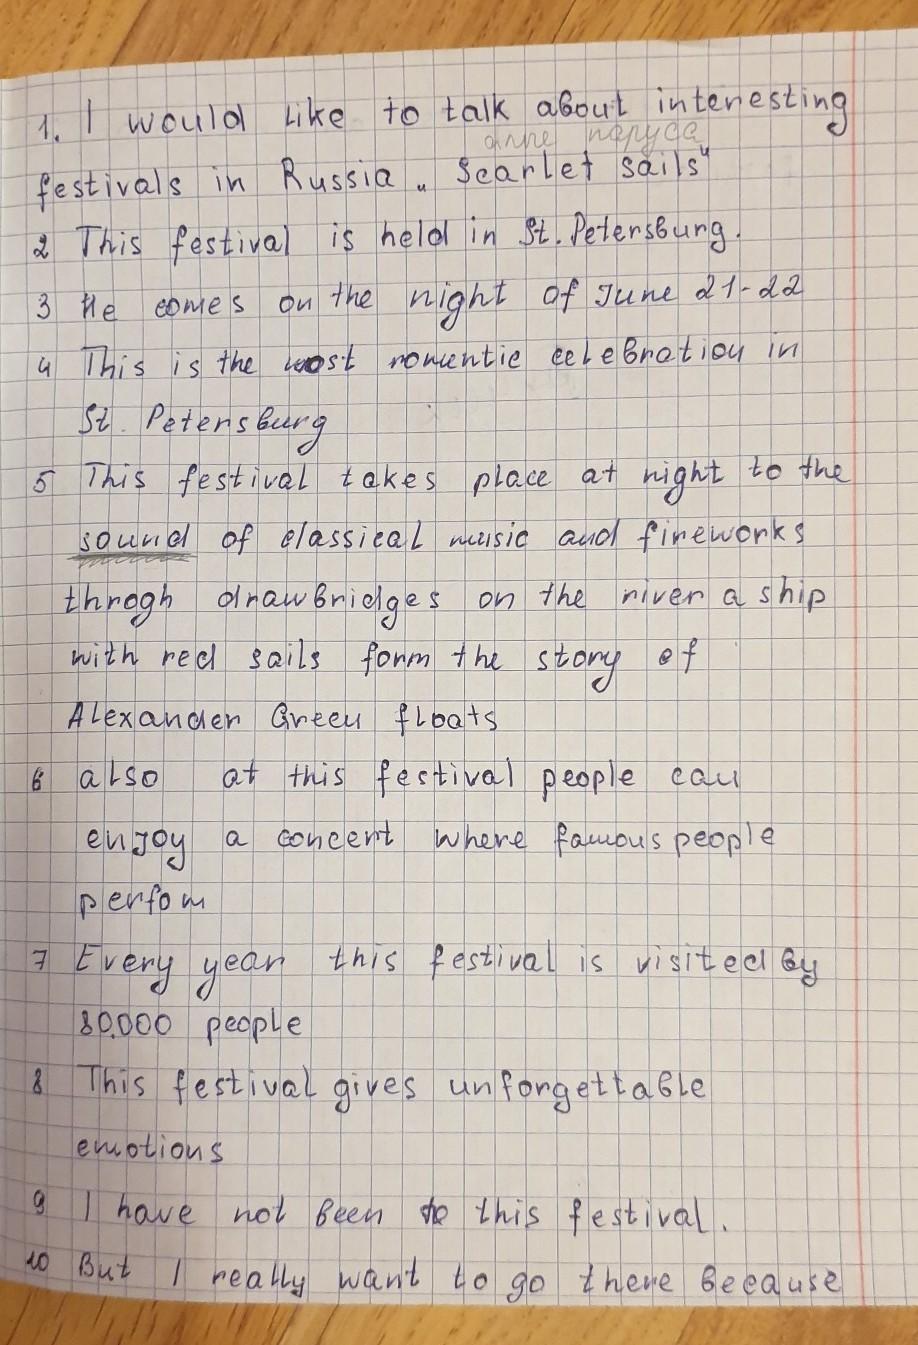 1. I would like to talk about interesting
алые паруса
festivals in Russia „Scarlet sails"
2 This festival is held in St. Petersburg.
3 He comes on the night of June 21-22
4 This is the most romentic celebration in
St. Petersburg
5 This festival takes place at night to the
sound of classical music and fireworks
throgh drawbridges on the river a ship
with red sails form the story of
Alexander Green floats
6 also at this festival people can
enjoy a concert where famous people
perfom
7 Every year this festival is visited by
80.000 people
8 This festival gives unforgettable
emotions
9 I have not been to this festival.
10 But I really want to go there because